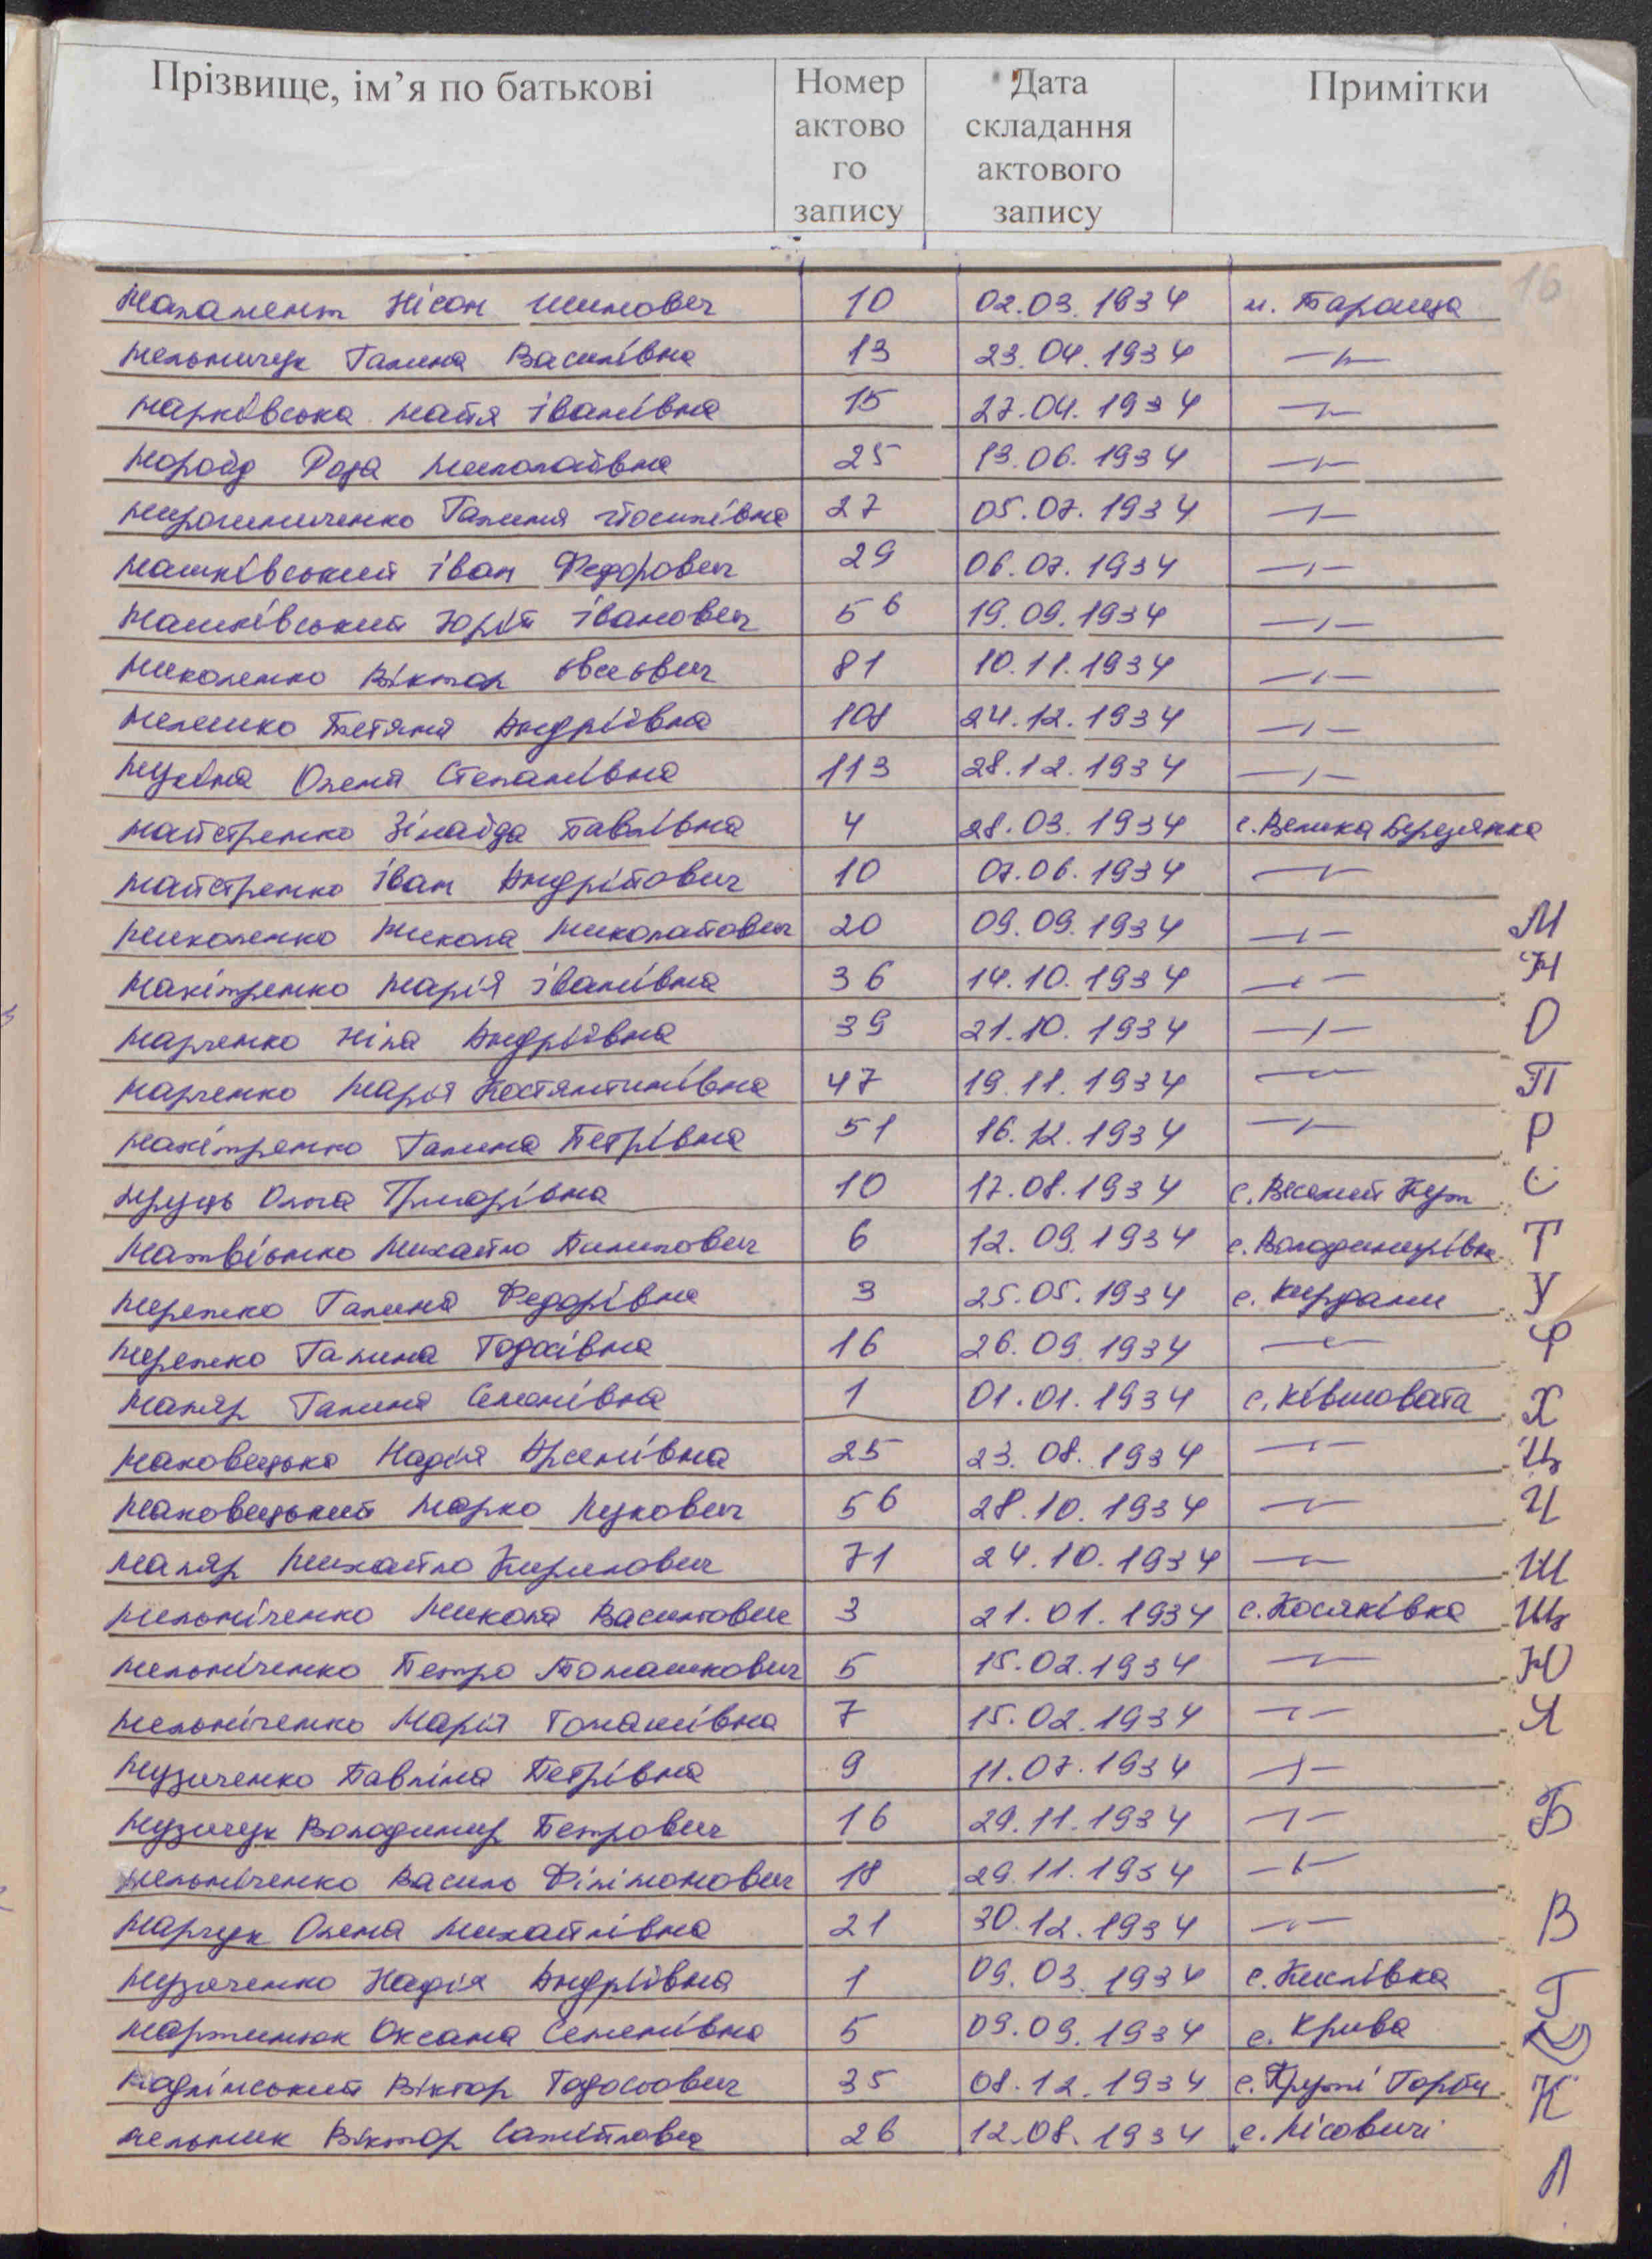 Прізвище, ім’я по батькові
Номер актово го запису
Дата складання актового запису
Примітки
16
Маламент Нісон Шимович 10 02.03.1934 м. Тараща
Мельничук Галина Василівна 13 23.04.1934 —"—
Марківська Майя Іванівна 15 27.04.1934 —"—
Мороїд Роза Миколаївна 25 13.06.1934 —"—
Мирошниченко Галина Йосипівна 27 05.07.1934 —"—
Машківський Іван Федорович 29 06.07.1934 —"—
Машківський Юрій Іванович 56 19.09.1934 —"—
Миколенко Віктор Овсьович 81 10.11.1934 —"—
Мелешко Тетяна Андріївна 108 24.12.1934 —"—
Мукіна Олена Степанівна 113 28.12.1934 —"—
Майстренко Зінаїда Павлівна 4 28.03.1934 с. Велика Березянка
Майстренко Іван Андрійович 10 07.06.1934 —"—
Миколенко Микола Миколайович 20 09.09.1934 —"— М
Макітренко Марія Іванівна 36 14.10.1934 —"— Н
Марченко Ніна Андріївна 39 21.10.1934 —"— О
Марченко Марія Костянтинівна 47 19.11.1934 —"— П
Макітренко Галина Петрівна 51 16.12.1934 —"— Р
Мруць Ольга Григорівна 10 17.08.1934 с. Веселий Кут С
Матвієнко Михайло Пилипович 6 12.09.1934 с. Володимирівка Т
Мережко Галина Федорівна 3 25.05.1934 с. Кирдани У
Мережко Галина Тодосівна 16 26.09.1934 —"— Ф
Маляр Галина Семенівна 1 01.01.1934 с. Ківшовата Х
Маковецька Надія Арсенівна 25 23.08.1934 —"— Ц
Маковецький Марко Лукович 56 28.10.1934 —"— Ч
Маляр Михайло Кирилович 71 24.10.1934 —"— Ш
Мельніченко Микола Васильович 3 21.01.1934 с. Косяківка Щ
Мельніченко Петро Томашкович 5 15.02.1934 —"— Ю
Мельніченко Марія Томашівна 7 15.02.1934 —"— Я
Музиченко Павліна Петрівна 9 11.07.1934 —"—
Музичук Володимир Петрович 16 29.11.1934 —"— Б
Мельніченко Василь Філімонович 18 29.11.1934 —"—
Марчук Олена Михайлівна 21 30.12.1934 —"— В
Музиченко Надія Андріївна 1 09.03.1934 с. Кислівка Г
Мартинюк Оксана Семенівна 5 09.09.1934 с. Крива Д
Мадлінський Віктор Тодосьович 35 08.12.1934 с. Круті Горби К
Мельник Віктор Самійлович 26 12.08.1934 с. Лісовичі Л